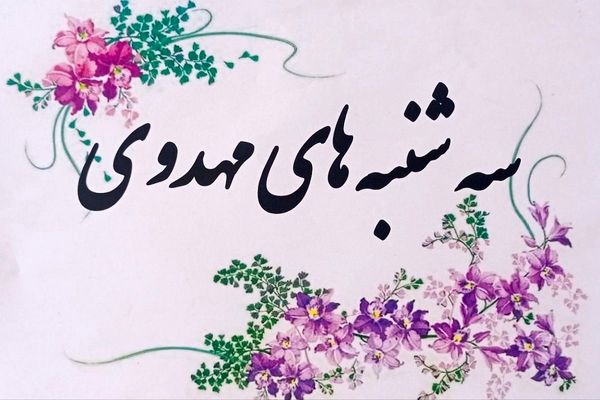 سه شنبه های مهدوی